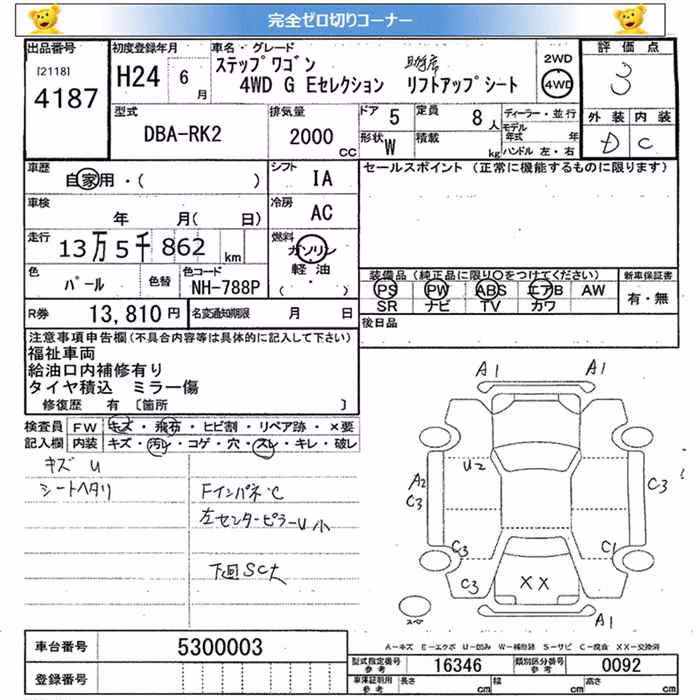 完全ゼロ切りコーナー
出品番号
[2118]
4187
初度登録年月
H24 6月
車名・グレード
ステップワゴン 助手席
4WD G Eセレクション リフトアップシート
2WD
4WD
評価点
3
外装 内装
D C
型式
DBA-RK2
排気量
2000 CC
ドア 5
形状 W
定員 8人
積載 kg
ディーラー・並行
モデル年式 年
ハンドル 左・右
車歴
自家用・( )
シフト
IA
セールスポイント (正常に機能するものに限ります)
車検
年 月( 日)
冷房
AC
走行
13万5千862km
燃料
ガソリン
軽油
( ・ )
色
パール
色替
色コード
NH-788P
装備品(純正品に限り○をつけてください)
PS PW ABS エアB AW
SR ナビ TV カワ
新車保証書
有・無
R券 13,810円
名変通知期限 月 日
後日品
注意事項申告欄(不具合内容等は具体的に記入して下さい)
福祉車両
給油口内補修有り
タイヤ積込 ミラー傷
修復歴 有 〔箇所 〕
検査員 FW キズ・飛石・ヒビ割・リペア跡・×要
記入欄 内装 キズ・汚レ・コゲ・穴・スレ・キレ・破レ
キズ U
シートヘタリ
FインパネC
左センターピラーU小
下回SC大
A1 A1
U2
A2
C3
C3
C3 C1
C3
XX
A1
スペア
A-キズ E-エクボ U-凹み W-補修跡 S-サビ C-腐食 XX-交換済
車台番号 5300003
登録番号
型式指定番号 参考 16346
類別区分番号 参考 0092
車庫証明用 参考 長さ cm 幅 cm 高さ cm